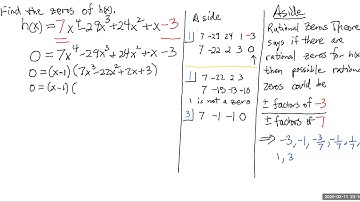 Find the zeros of h(x).
h(x) = 7x⁴-29x³+24x²+x-3
0 = 7x⁴-29x³+24x²+x-3
0 = (x-1)(7x³-22x²+2x+3)
0 = (x-1)(
Aside
1| 7 -29 24 1 -3
7 -22 2 3 0
1| 7 -22 2 3
7 -15 -13 -10
1 is not a zero
3| 7 -1 -1 0
Aside
Rational Zeros Theorem
says if there are
rational zeros for h(x)
then possible rational
zeros could be
± factors of -3
± factors of 7
⇒ -3, -1, -3/7, -1/7, 1/7,
1, 3